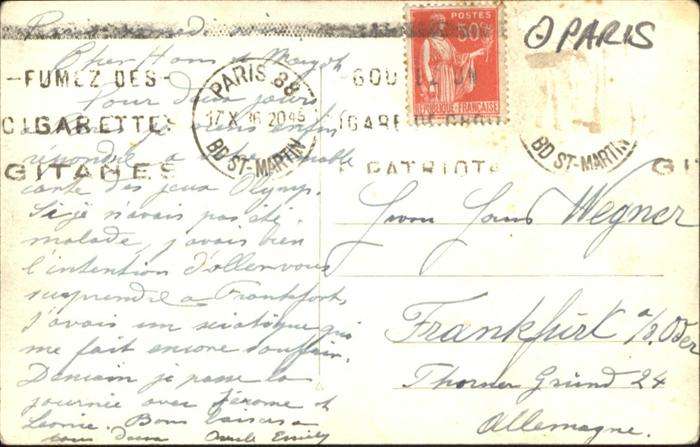 PARIS
POSTES
50c
REPUBLIQUE FRANÇAISE
PARIS 88
17 X 36 2045
BD ST-MARTIN
-FUMEZ DES-
CIGARETTES
GITANES
GOU
CIGARE DE
PATRIOTE
BD ST-MARTIN
GI
Cher Hans et
Pour deux jours
enfin
répondre a aimable
carte des jeux Olymp.
Si je n'avais pas été
malade, j'avais bien
l'intention d'aller vous
surprendre a Frankfort,
J'avais une sciatique qui
me fait encore souffrir.
Demain je passe la
journée avec Jérome et
Leonie. Bons baisers a
vous deux Oncle Emile
Herrn Hans Wegner
Frankfurt a/d. Oder
Thorner Grund 24
Allemagne.